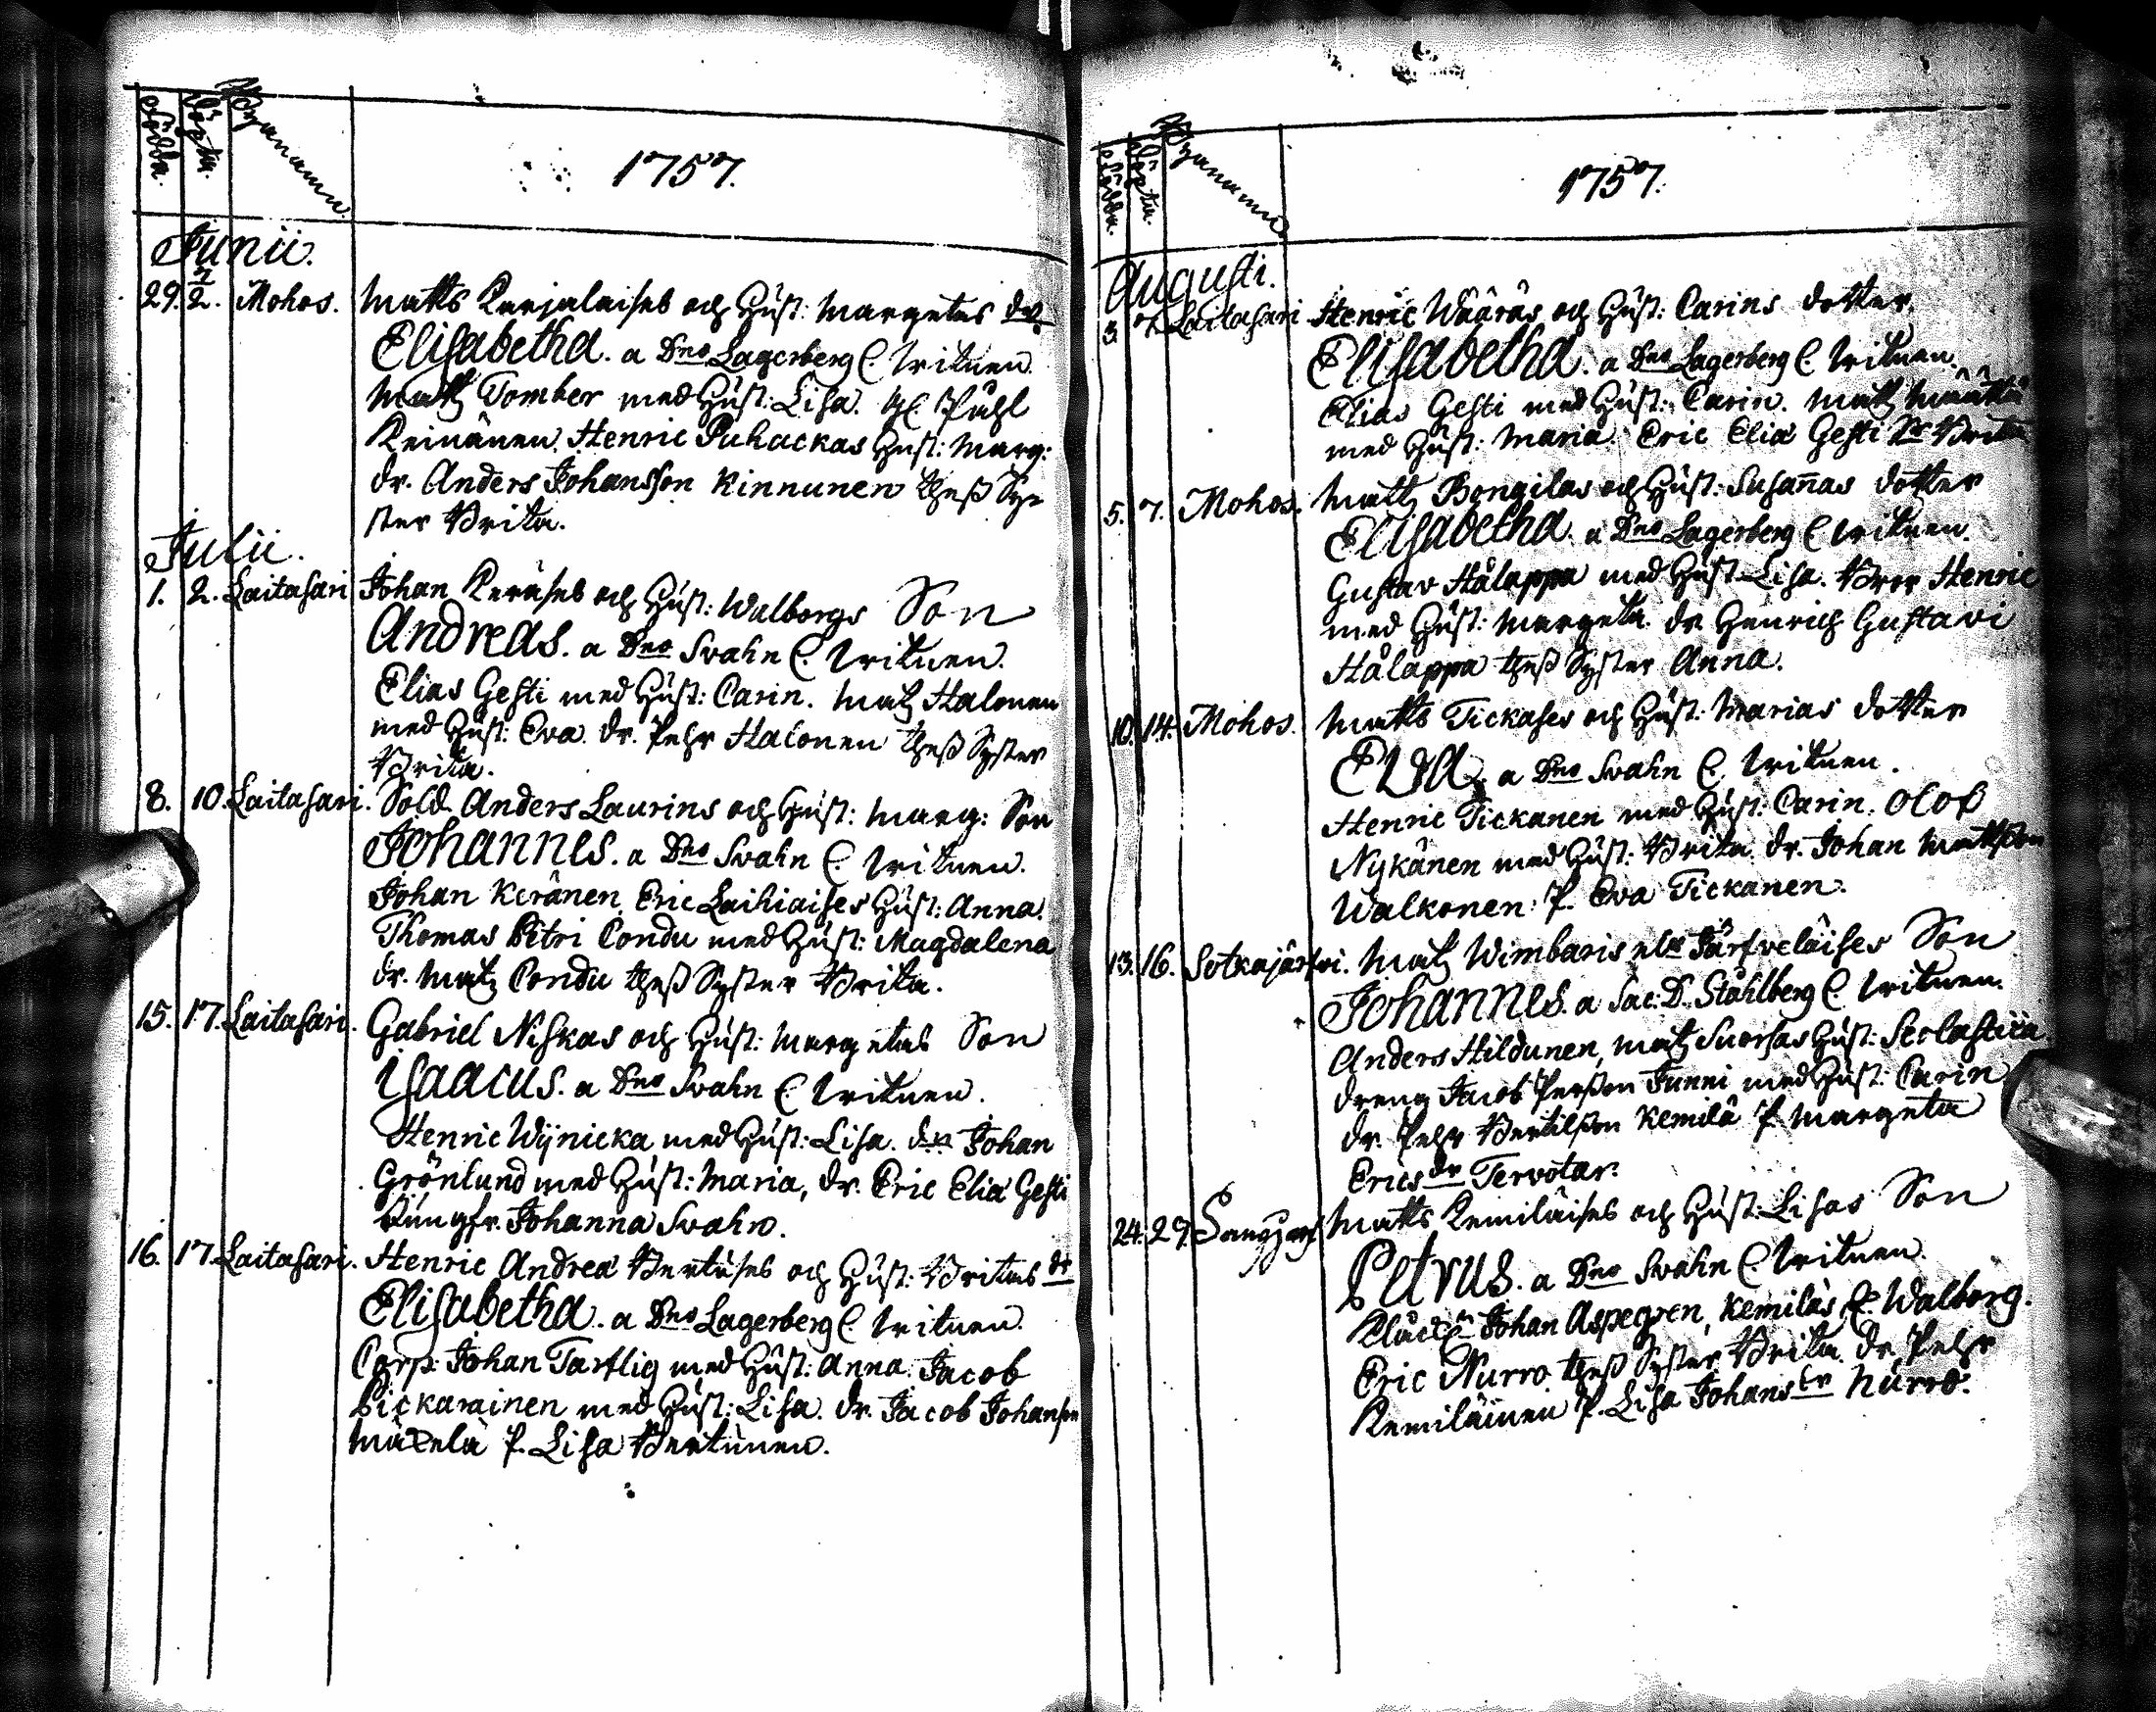 Födda. Döpta. Byanamn.
1757.
Junii.
29. 2/7. Mohos. Matts Karjalaises och Hust: Margetas dr.
Elisabetha. a Dno Lagerberg C. Vitnen.
Matz Tomber med Hust: Lisa. Påhl
Keinänen. Henric Puhackas Hust: Marg:
dr. Anders Johansson Kinnunen thess Sy-
ster Brita.
Julii.
1. 2. Laitasari Johan Keräses och Hust: Walborgs Son
Andreas. a Dno Svahn C. Vitnen.
Elias Gesti med Hust: Carin. Matz Halonen
med Hust: Eva. dr. Pehr Halonen thess Syster
Brita.
8. 10. Laitasari. Sold. Anders Laurins och Hust: Marg: Son
Johannes. a Dno Svahn C. Vitnen.
Johan Keränen, Eric Laihiaises Hust: Anna.
Thomas Petri Condu med Hust: Magdalena
dr. Matz Condu thess Syster Brita.
15. 17. Laitasari. Gabriel Niskas och Hust: Margetas Son
Isaacus. a Dno Svahn C. Vitnen.
Henric Wijnicka med Hust: Lisa. Johan
Grönlund med Hust: Maria, dr. Eric Eliæ Gesti
Jungfr. Johanna Svahn.
16. 17. Laitasari. Henric Andreæ Bertuses och Hust: Britas dr
Elisabetha. a Dno Lagerberg C. Vitnen.
Corp: Johan Tartlig med Hust: Anna. Jacob
Pickarainen med Hust: Lisa. dr. Jacob Johanson
Mäkelä P. Lisa Bertunen.
Födda. Döpta. Byanamn.
1757.
Augusti.
3. 7. Laitasari Henric Wääräs och Hust: Carins dotter
Elisabetha. a Dno Lagerberg C. Vitnen.
Elias Gesti med Hust: Carin. Matz Määttä
med Hust: Maria. Eric Eliæ Gesti Brita
5. 7. Mohos. Matz Bongilas och Hust: Susannas dotter
Elisabetha. a Dno Lagerberg C. Vitnen.
Gustav Hålappa med Hust: Lisa. Bror Henric
med Hust: Margeta. dr. Henrich Gustavi
Hålappa thess Syster Anna.
10. 14. Mohos. Matts Tickases och Hust: Marias dotter
Eva. a Dno Svahn C. Vitnen.
Henric Tickanen med Hust: Carin. Olof
Nykänen med Hust: Brita. dr. Johan Mattson
Walkonen. P. Eva Tickanen.
13. 16. Sotkajärfvi. Matz Wimbaris Järfveläises Son
Johannes. a Sac: D. Ståhlberg C. Vitnen.
Anders Hildunen, Matz Suorsas Hust: Scolastica
dreng Jacob Persson Junni med Hust: Carin
dr. Pehr Bertilsson Kemilä P. Margeta
Ericsdr Tervotar.
24. 29. Matts Kemiläises och Hust: Lisas Son
Petrus. a Dno Svahn C. Vitnen.
Johan Aspegren, Kemiläs E. Walborg.
Eric Nurro. thess Syster Brita. dr. Pehr
Kemiläinen P. Lisa Johansdr Nurro.